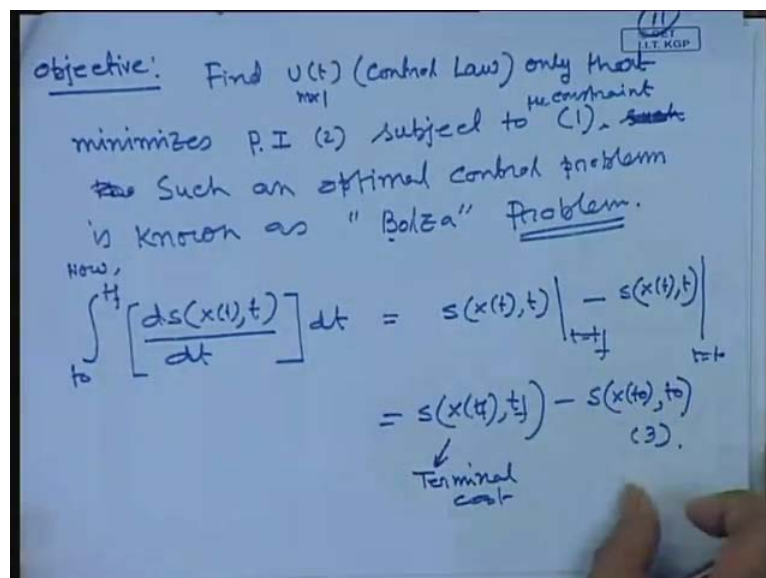 11
C CET
I.I.T. KGP
Objective: Find U(t) (Control Law) only that
mx1
minimizes P.I (2) subject to the constraint (1).
Such an optimal control problem
is known as "Bolza" Problem.
Now,
∫_{t0}^{tf} [ds(x(t),t)/dt] dt = s(x(t),t)|_{t=tf} − s(x(t),t)|_{t=t0}
= s(x(tf),tf) − s(x(t0),t0)
(3).
Terminal
cost